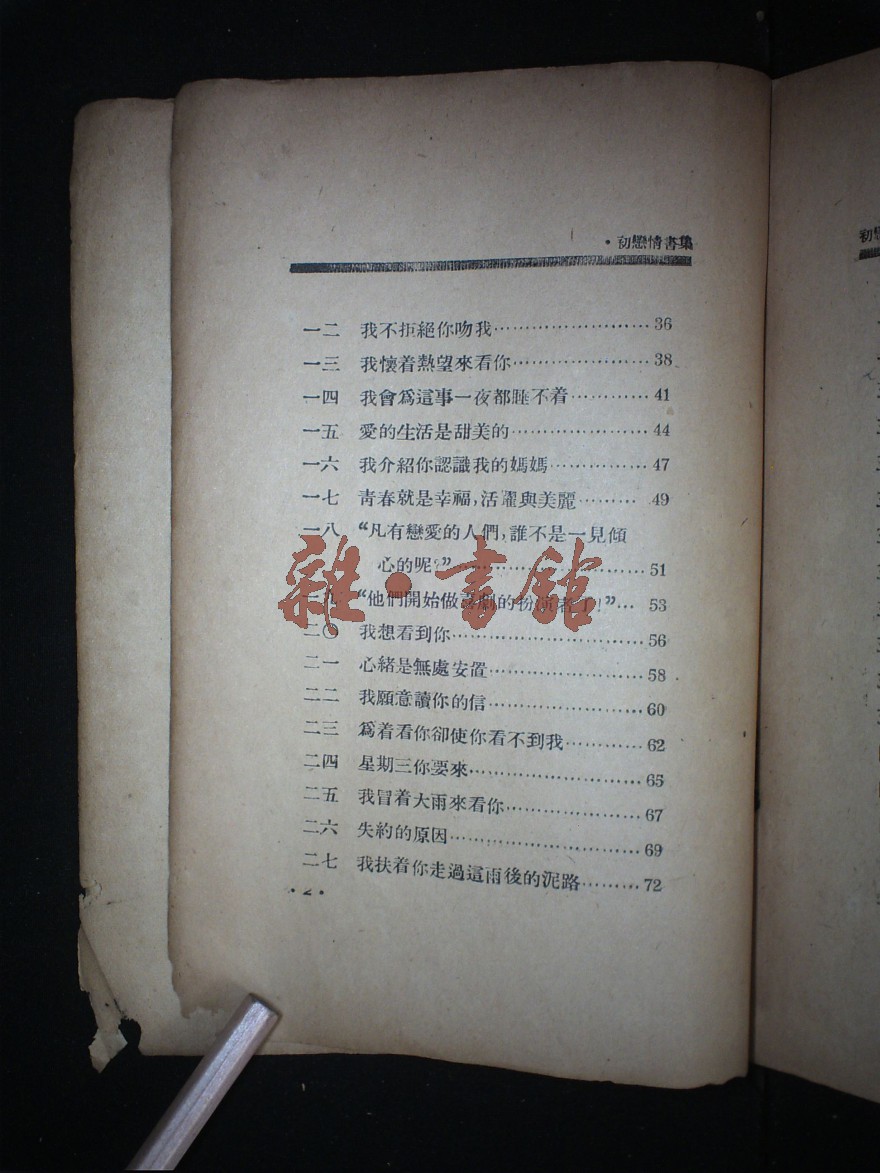 • 初戀情書集
一二 我不拒絕你吻我………………………36
一三 我懷着熱望來看你……………………38
一四 我會爲這事一夜都睡不着…………41
一五 愛的生活是甜美的……………………44
一六 我介紹你認識我的媽媽………………47
一七 靑春就是幸福,活躍與美麗………49
一八 “凡有戀愛的人們,誰不是一見傾
心的呢?”………………………………51
一九 “他們開始做喜劇的扮演者了!”…53
二〇 我想看到你……………………………56
二一 心緒是無處安置………………………58
二二 我願意讀你的信………………………60
二三 爲着看你卻使你看不到我…………62
二四 星期三你要來…………………………65
二五 我冒着大雨來看你……………………67
二六 失約的原因……………………………69
二七 我扶着你走過這雨後的泥路………72
• 2 •
雜·書館
初